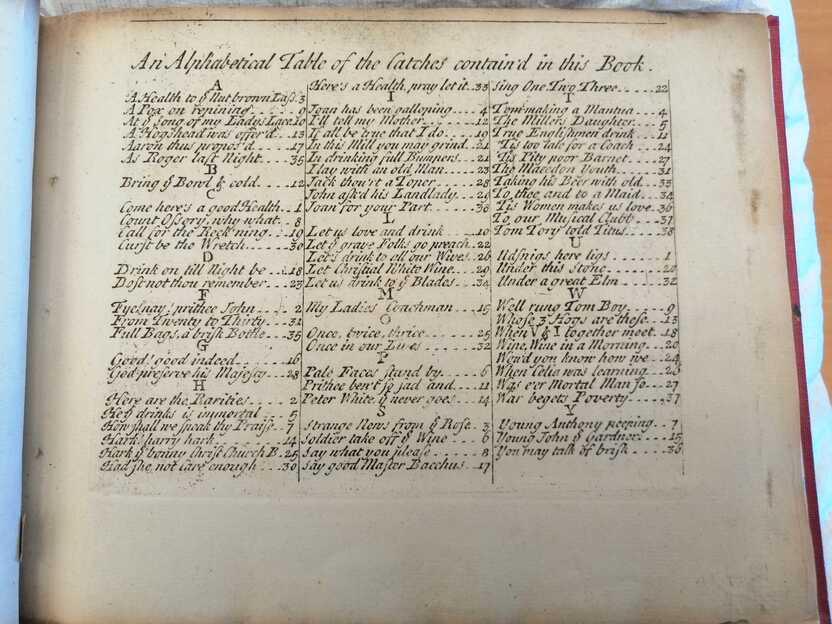 An Alphabetical Table of the Catches contain'd in this Book.
A
A Health to ẙ Nut brown Laſs. 3
A Pox on repining . . . . 9
At ẙ Song of my Ladys Lace 10
A Hogshead was offer'd . . 13
Aaron thus propos'd . . . 17
As Roger last Night . . . . 35
B
Bring ẙ Bowl & cold . . . . 12
C
Come here's a good Health . . 1
Count Oſsory, why what . . 8
Call for the Reck'ning . . . 19
Curst be the Wretch . . . . 30
D
Drink on till Night be . . . 18
Dost not thou remember . . 23
F
Fye, nay, prithee John . . . 2
From Twenty to Thirty . . . 31
Full Bags, a brisk Bottle . . 35
G
Good! good indeed . . . . . 16
God preserve his Majesty . . 28
H
Here are the Rarities . . . 2
He ẙ drinks is immortal . . 5
How shall we speak thy Praise . . 7
Hark harry hark . . . . . 14
Hark ẙ bonny Christ Church B. 25
Had she not care enough . . . 30
Here's a Health, pray let it . . 33
I
Joan has been galloping . . . . 4
I'll tell my Mother . . . . 12
If all be true that I do . . . 19
In this Mill you may grind . . 21
In drinking full Bumpers . . 21
I lay with an old Man . . . 23
Jack thou'rt a Toper . . . . 28
John ask'd his Landlady . . 29
Joan for your Part . . . . 36
L
Let us love and drink . . . 10
Let ẙ grave Folks go preach . . 22
Let's drink to all our Wives . . 26
Let Christial White Wine . . . 29
Let us drink to ẙ Blades . . . 34
M
My Ladies Coachman . . . 15
O
Once, twice, thrice . . . . 25
Once in our Lives . . . . 32
P
Pale Faces stand by . . . . 6
Prithee ben't so sad and . . . 11
Peter White ẙ never goes . . 14
S
Strange News from ẙ Rose . . 3
Soldier take off ẙ Wine . . . 6
Say what you please . . . . 8
Say good Master Bacchus . . 17
Sing One Two Three . . . . . 22
T
Tom making a Mantua . . . 4
The Miller's Daughter . . . . 5
True Englishmen drink . . . 11
'Tis too late for a Coach . . 24
'Tis Pity poor Barnet . . . 27
The Macedon Youth . . . . 31
Taking his Beer with old . . . 33
To, thee and to a Maid . . . 34
'Tis Women makes us love . . 36
To, our Musical Clubb . . . 37
Tom Tory told Titus . . . . 38
U
Udsnigs here ligs . . . . . 1
Under this Stone . . . . . 20
Under a great Elm . . . . 32
W
Well rung Tom Boy . . . . 9
Whose 3 Hogs are these . . . 13
When V & I together meet . . 18
Wine, Wine in a Morning . . 20
Wou'd you know how we . . 24
When Celia was learning . . 26
Was ever Mortal Man so . . 27
War begets Poverty . . . . 37
Y
Young Anthony peeping . . 7
Young John ẙ Gardner . . . 15
You may talk of brisk . . . 36